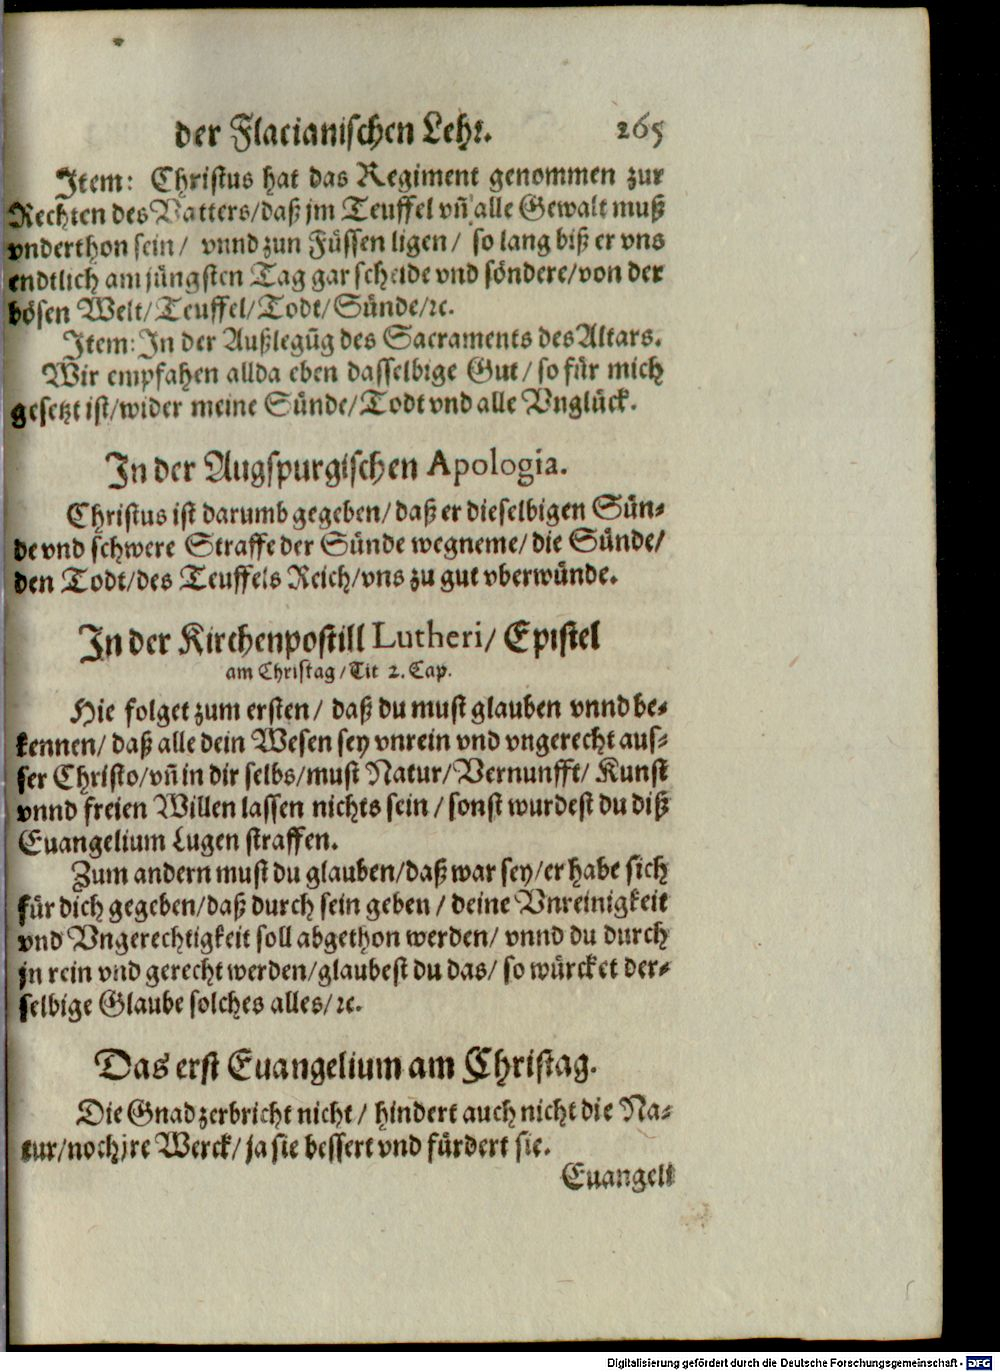 der Flacianischen Lehr. 265
Item: Christus hat das Regiment genommen zur
Rechten des Vatters/daß jm Teuffel vñ alle Gewalt muß
vnderthon sein/ vnnd zun Füssen ligen/ so lang biß er vns
endtlich am jüngsten Tag gar scheide vnd söndere/von der
bösen Welt/Teuffel/Todt/Sünde/ꝛc.
Item: In der Außlegũg des Sacraments des Altars.
Wir empfahen allda eben dasselbige Gut/ so für mich
gesetzt ist/wider meine Sünde/Todt vnd alle Vnglück.
In der Augspurgischen Apologia.
Christus ist darumb gegeben/daß er dieselbigen Sün-
de vnd schwere Straffe der Sünde wegneme/die Sünde/
den Todt/des Teuffels Reich/vns zu gut vberwünde.
In der Kirchenpostill Lutheri/ Epistel
am Christag/Tit 2. Cap.
Hie folget zum ersten/ daß du must glauben vnnd be-
kennen/ daß alle dein Wesen sey vnrein vnd vngerecht aus-
ser Christo/vñ in dir selbs/must Natur/Vernunfft/ Kunst
vnnd freien Willen lassen nichts sein/ sonst wurdest du diß
Euangelium Lugen straffen.
Zum andern must du glauben/daß war sey/er habe sich
für dich gegeben/daß durch sein geben/ deine Vnreinigkeit
vnd Vngerechtigkeit soll abgethon werden/ vnnd du durch
jn rein vnd gerecht werden/glaubest du das/ so würcket der-
selbige Glaube solches alles/ꝛc.
Das erst Euangelium am Christag.
Die Gnad zerbricht nicht/ hindert auch nicht die Na-
tur/noch jre Werck/ ja sie bessert vnd fürdert sie.
Euangeli
Digitalisierung gefördert durch die Deutsche Forschungsgemeinschaft - DFG